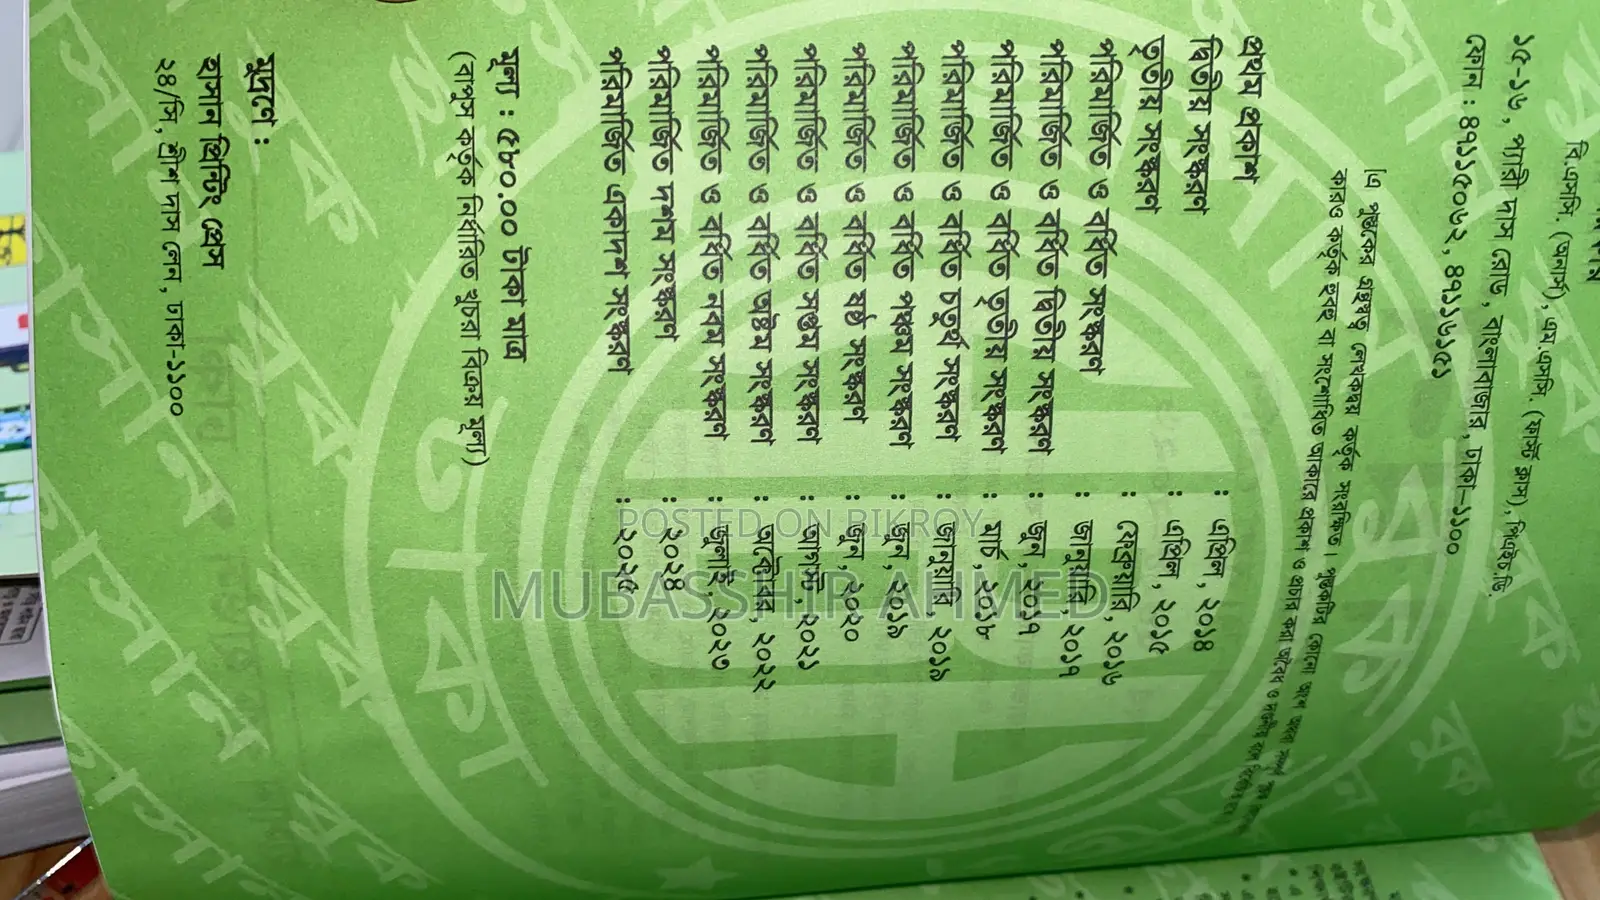 বি.এসসি. (অনার্স), এম.এসসি. (ফার্স্ট ক্লাস), পিএইচ.ডি.
১৫-১৬, প্যারী দাস রোড, বাংলাবাজার, ঢাকা—১১০০
ফোন : ৪৭১১৫০৬২, ৪৭১১৬১৫১
[এ পুস্তকের গ্রন্থস্বত্ব লেখকদ্বয় কর্তৃক সংরক্ষিত। পুস্তকটির কোনো অংশ অথবা সম্পূর্ণ
কারও কর্তৃক হুবহু বা সংশোধিত আকারে প্রকাশ ও প্রচার করা অবৈধ ও দণ্ডনীয় বলে
প্রথম প্রকাশ : এপ্রিল, ২০১৪
দ্বিতীয় সংস্করণ : এপ্রিল, ২০১৫
তৃতীয় সংস্করণ : ফেব্রুয়ারি, ২০১৬
পরিমার্জিত ও বর্ধিত সংস্করণ : জানুয়ারি, ২০১৭
পরিমার্জিত ও বর্ধিত দ্বিতীয় সংস্করণ : জুন, ২০১৭
পরিমার্জিত ও বর্ধিত তৃতীয় সংস্করণ : মার্চ, ২০১৮
পরিমার্জিত ও বর্ধিত চতুর্থ সংস্করণ : জানুয়ারি, ২০১৯
পরিমার্জিত ও বর্ধিত পঞ্চম সংস্করণ : জুন, ২০১৯
পরিমার্জিত ও বর্ধিত ষষ্ঠ সংস্করণ : জুন, ২০২০
পরিমার্জিত ও বর্ধিত সপ্তম সংস্করণ : আগস্ট, ২০২১
পরিমার্জিত ও বর্ধিত অষ্টম সংস্করণ : অক্টোবর, ২০২২
পরিমার্জিত ও বর্ধিত নবম সংস্করণ : জুলাই, ২০২৩
পরিমার্জিত দশম সংস্করণ : ২০২৪
পরিমার্জিত একাদশ সংস্করণ : ২০২৫
মূল্য : ৫৮০.০০ টাকা মাত্র
(বাপুস কর্তৃক নির্ধারিত খুচরা বিক্রয় মূল্য)
মুদ্রণে :
হাসান প্রিন্টিং প্রেস
২৪/সি, শ্রীশ দাস লেন, ঢাকা-১১০০
POSTED ON BIKROY
MUBASSHIR AHMED